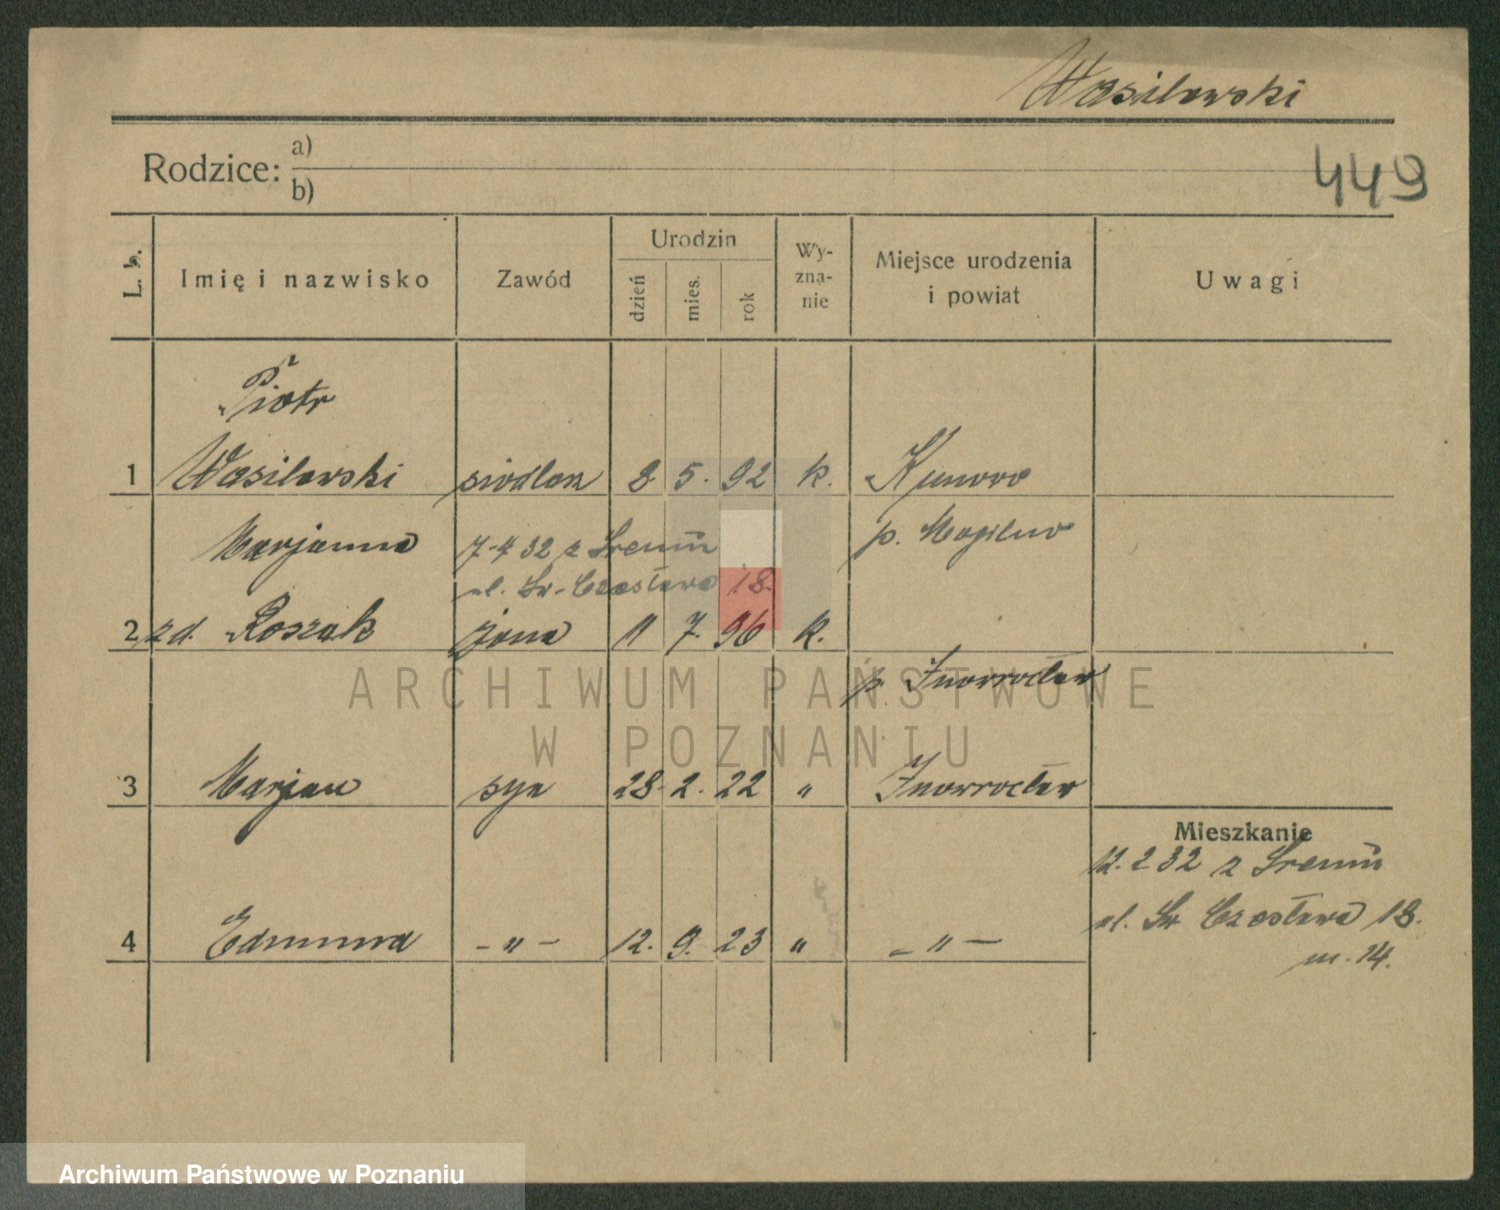 Wasilewski
Rodzice: a)
b)
449
L. b.
Imię i nazwisko
Zawód
Urodzin
dzień
mies.
rok
Wy-
zna-
nie
Miejsce urodzenia
i powiat
Uwagi
Piotr
1 Wasilewski siodlarz 8 5. 92 k. Kunowo
Marjanna 7-4 32 z Śremu p. Mogilno
ul. Św. Czesława 18.
2 zd. Roszak żona 11 7. 96 k.
p. Inowrocław
ARCHIWUM PAŃSTWOWE
W POZNANIU
3 Marjan syn 28. 2. 22 " Inowrocław
Mieszkanie
12. 2 32 z Śremu
ul. Św Czesława 18.
m. 14.
4 Edmund - " - 12. 9. 23 " - " -
Archiwum Państwowe w Poznaniu